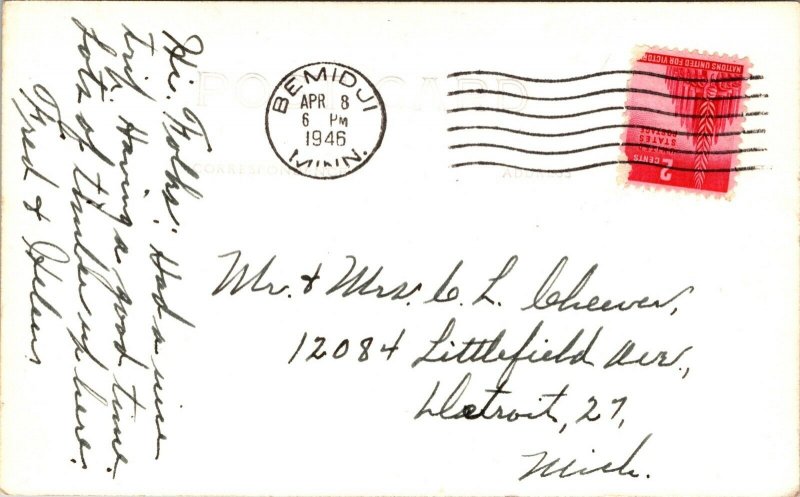 Hi. Folks: Had a nice
trip. Having a good time.
Lots of timber up here.
Fred & Helen.
POST CARD
BEMIDJI
APR 8
6 PM
1946
MINN.
NATIONS UNITED FOR VICTORY
UNITED
STATES
POSTAGE
2 CENTS
CORRESPONDENCE
ADDRESS
Mr. & Mrs. C. L. Cheever,
12084 Littlefield Ave.,
Detroit, 27,
Mich.